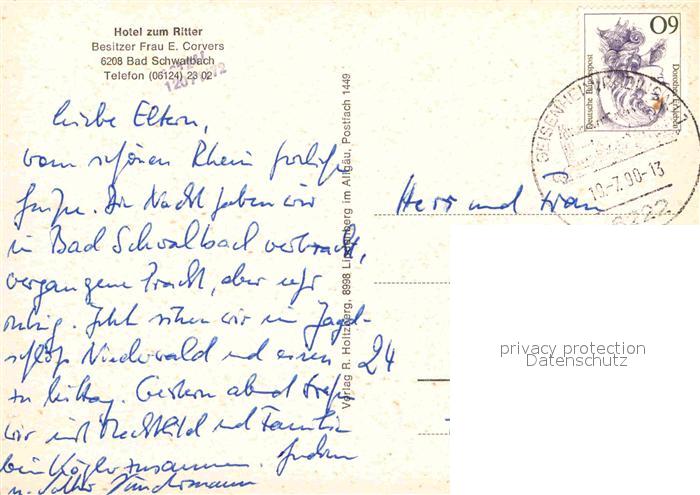 Hotel zum Ritter
Besitzer Frau E. Corvers
6208 Bad Schwalbach
Telefon (06124) 23 02
60
Deutsche Bundespost
Liebe Eltern,
vom schönen Rhein
In Nacht haben wir
in Bad Schwalbach verbracht,
vergangene Pracht, aber sehr
ruhig. Jetzt sitzen wir im Jagd-
schloß Niederwald und essen
zu Mittag. Gestern abend
wir mit Mechthild und Familie
beim Kögler zusammen.
u. Volker
Verlag R. Holtzberg, 8998 Lindenberg im Allgäu, Postfach 1449
GEISENHEIM
10-7.90-13
6222
Herr und Frau
24
privacy protection
Datenschutz